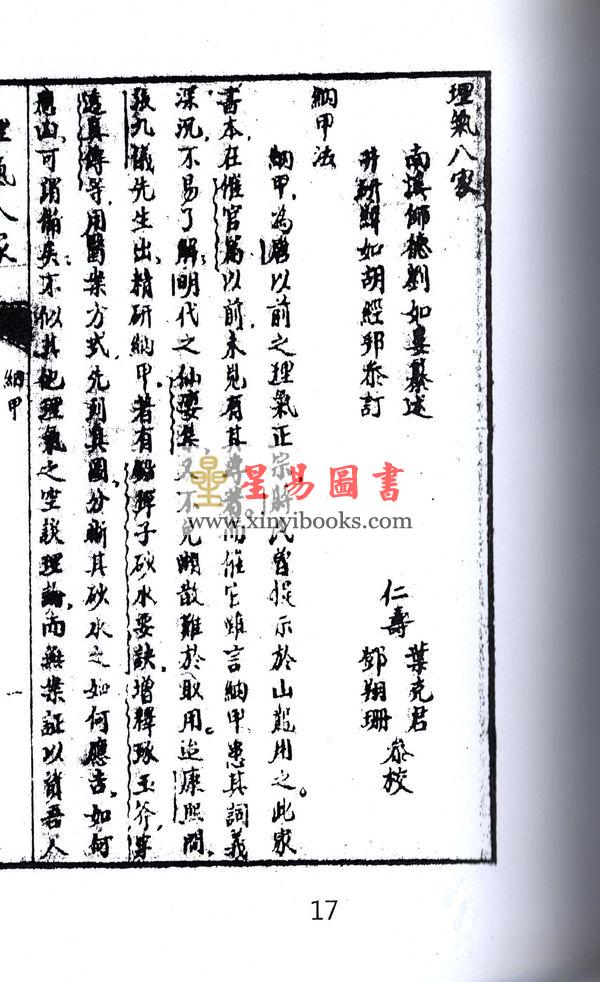 理氣八家
南溪師德劉如
井研 如胡經邦叅訂
仁壽 葉克君 鄧翔珊 叅校
納甲法
納甲為唐以前之理氣正宗 氏曾 示於山龍用之此家
書本在催官篇以前未見有其 者 催官雖言納甲患其詞義
深沉不易了解明代之仙 集又不 見 散難於取用迨康熙間
張九儀先生出精研納甲著有 彈子砂水要訣增釋琢玉斧等
透真傳等用醫案方式先列其圖分斷其砂水之如何應吉如何
應凶可謂備矣不似其他理氣之空談理論而無案証以資吾人
理氣八家
納甲
一
星易圖書
www.xinyibooks.com
17